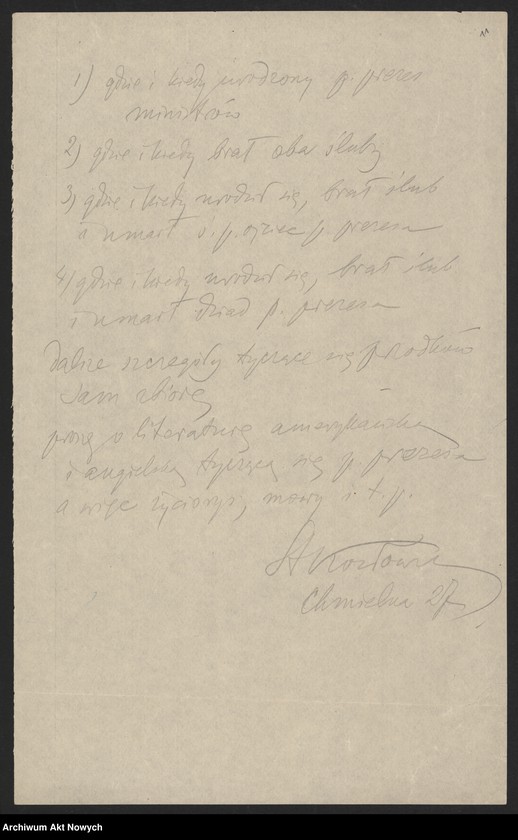 11
1) gdzie i kiedy urodzony p. prezes
ministrów
2) gdzie i kiedy brał oba śluby
3) gdzie i kiedy urodził się, brał ślub
i umarł ś. p. ojciec p. prezesa
4) gdzie i kiedy urodził się, brał ślub
i umarł dziad p. prezesa
dalsze szczegóły tyczące się przodków
sam zbiorę
proszę o literaturę amerykańską
i angielską tyczącą się p. prezesa
a więc życiorys, mowy i. t. p.
Chmielna 27
Archiwum Akt Nowych